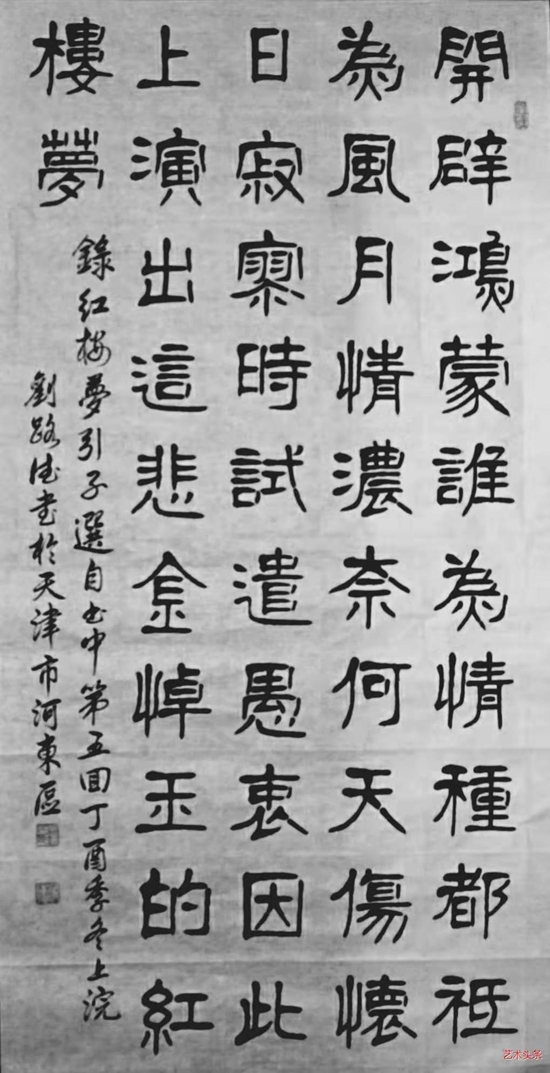 開辟鴻蒙誰為情種都祗
為風月情濃奈何天傷懷
日寂寥時試遣愚衷因此
上演出這悲金悼玉的紅
樓夢
錄紅樓夢引子選自书中第五回丁酉季冬上浣
劉路德书於天津市河東區
艺术头条